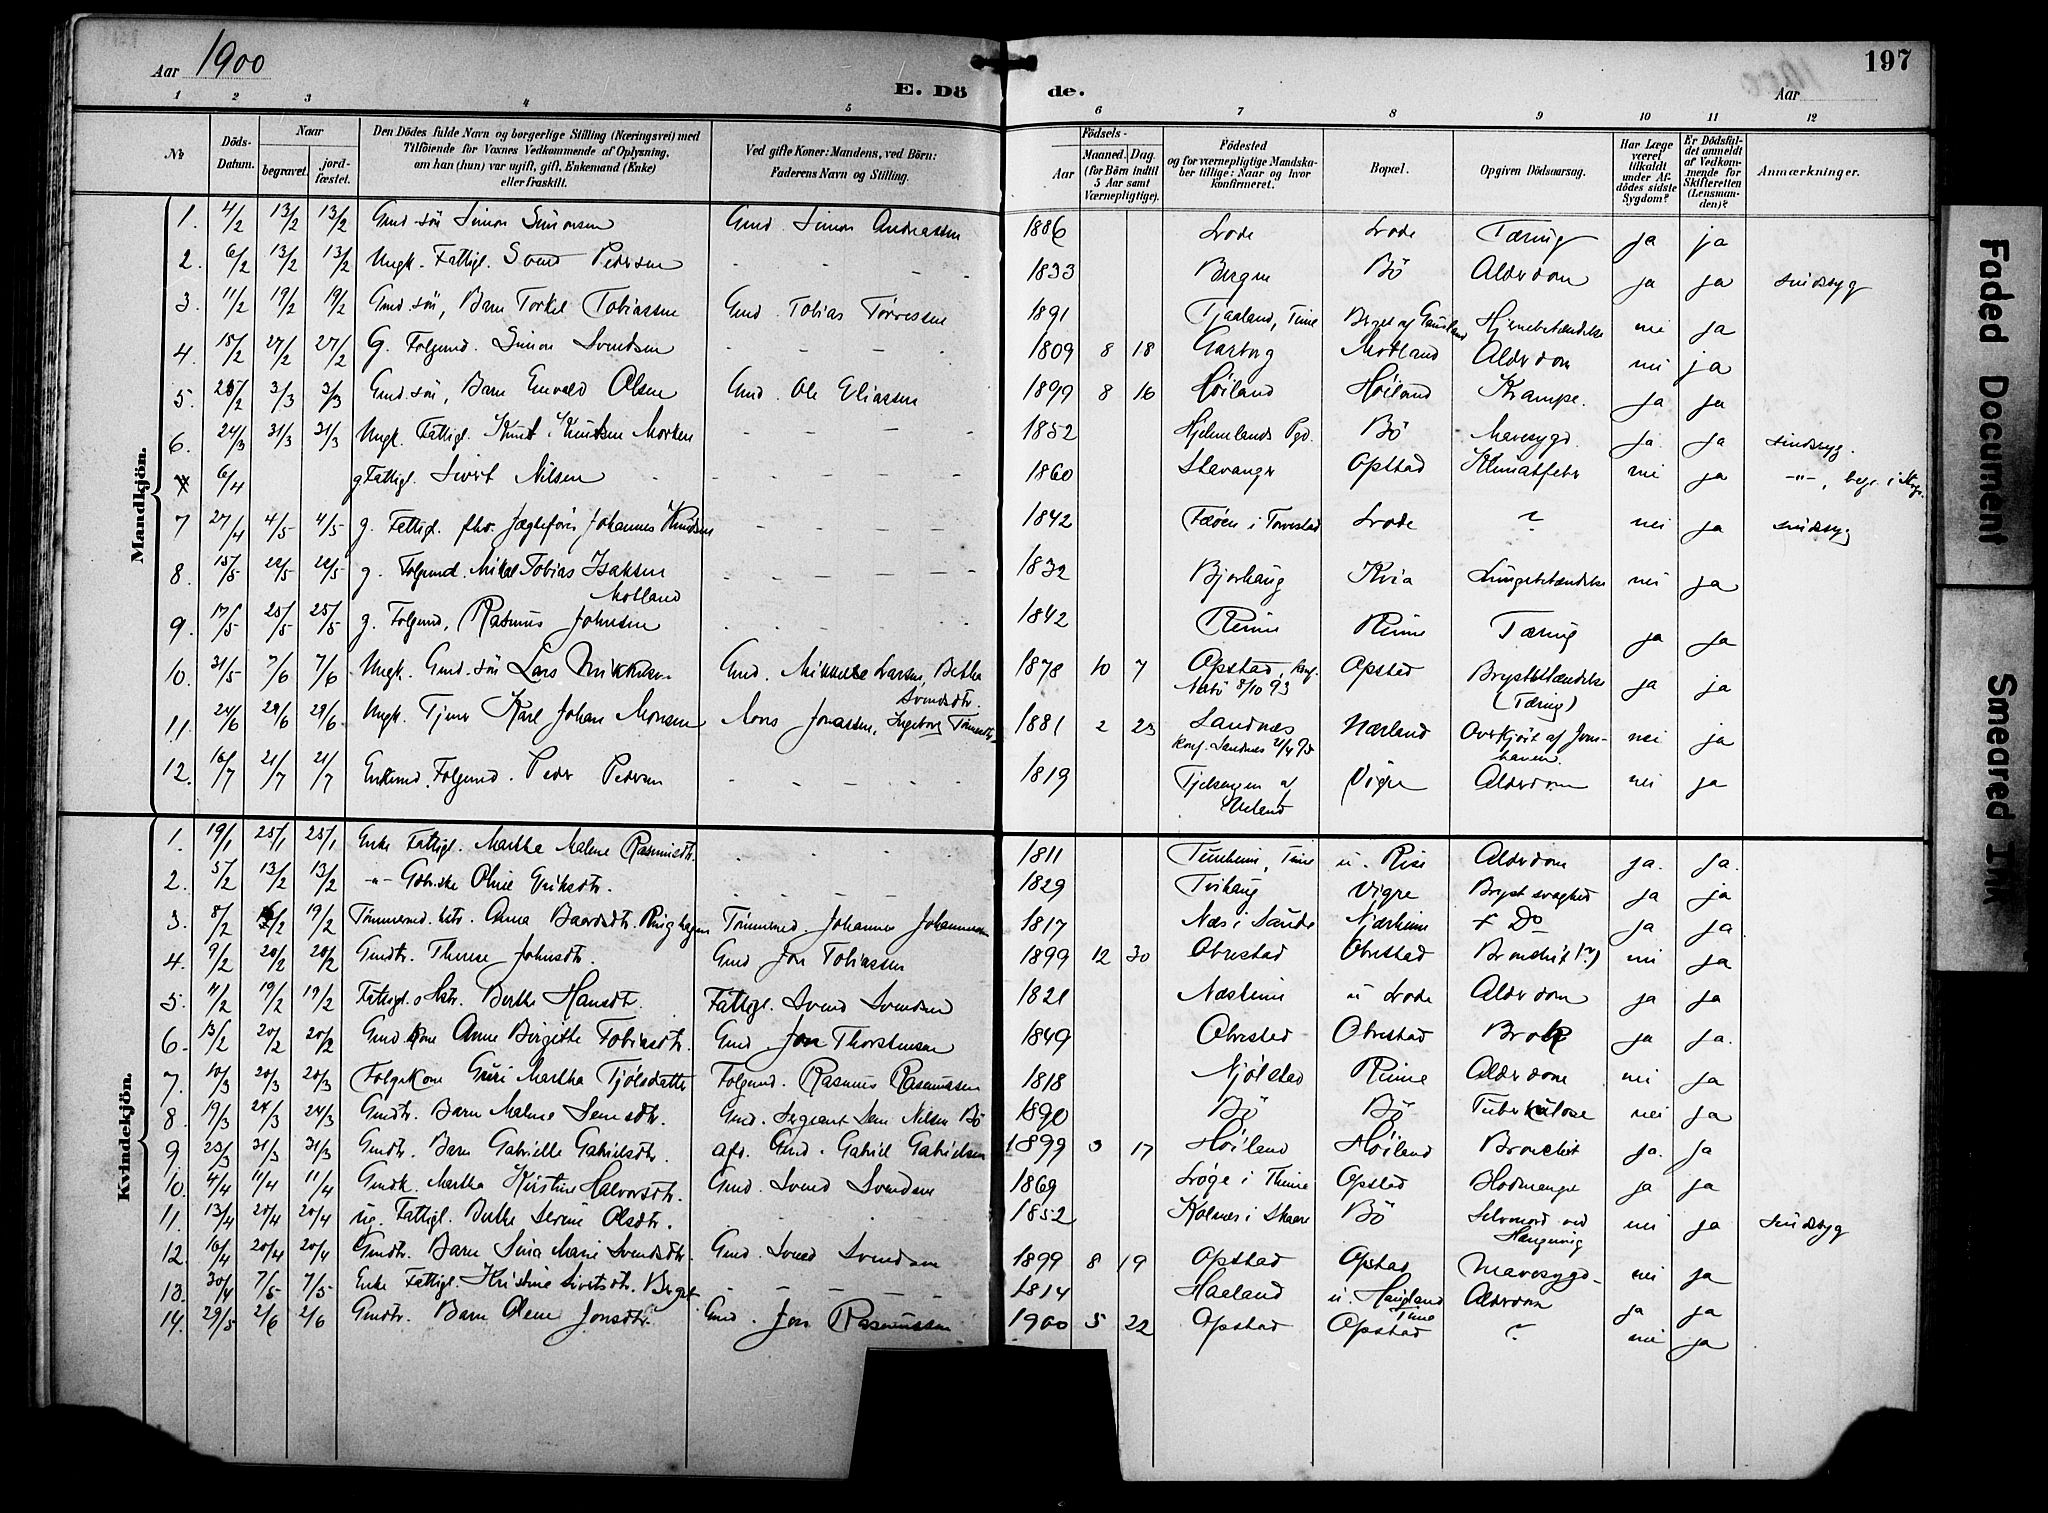 Aar 1900
E. Dö
de.
197
Aar
1 2 3 4 5 6 7 8 9 10 11 12
№
Döds-Datum.
Naar
begravet.
jord-fæstet.
Den Dödes fulde Navn og borgerlige Stilling (Næringsvei) med
Tilföiende for Voxnes Vedkommende af Oplysning,
om han (hun) var ugift, gift, Enkemand (Enke)
eller fraskilt.
Ved gifte Koner: Mandens, ved Börn:
Faderens Navn og Stilling.
Födsels-
Aar
Maaned. Dag.
(for Börn indtil
5 Aar samt
Værnepligtige).
Födested
og for værnepligtige Mandska-
ber tillige: Naar og hvor
konfirmeret.
Bopæl.
Opgiven Dödsaarsag.
Har Læge
været
tilkaldt
under Af-
dödes sidste
Sygdom?
Er Dödsfal-
det anmeldt
af Vedkom-
mende for
Skifteretten
(Lensman-
den)?
Anmærkninger.
Mandkjön.
1. 4/2 13/2 13/2 Gmd sön Simon Simonsen Gmd. Simon Andreassen 1886 Lode Lode Tæring ja ja
2. 6/2 13/2 13/2 Ungk. Fattigl. Svend Pedersen - - - - 1833 Bergen Bö Alderdom ja ja sindssyg
3. 11/2 19/2 19/2 Gmd sön, Barn Torkel Tobiassen Gmd. Tobias Törressen 1891 Tjaaland, Time Berget af Gausland Hjernebetændelse nei ja
4. 18/2 27/2 27/2 G. Folgmd. Simon Svendsen - - - - 1809 8 18 Garborg Motland Alderdom nei ja
5. 3/3 3/3 Gmd. sön, Barn Enevald Olsen Gmd. Ole Eliassen 1899 8 16 Höiland Höiland Krampe. ja ja
6. 24/3 31/3 31/3 Ungk. Fattigl. Knut Knutsen - - - - 1852 Hjelmelands Pgd. Bö Mavesygd. ja. ja sindssyg.
7 6/4 g Fattigl. Sivert Nilsen - - - - 1860 Stavanger Opstad Klimatfeber nei ja -"-, begr. i
7 27/4 4/5 4/5 g. Fattigl. fhv. Johannes Knudsen - - - - 1842 i Torvestad Lode ? nei ja sindssyg
8. 15/5 22/5 22/5 g. Folgmd. Mikal Tobias Isaksen - - - - 1832 Bjorhaug Kvia Lungebetændelse nei ja
Motland
9. 17/5 25/5 25/5 g. Folgmd, Rasmus Johnsen - - - - 1842 Reime Reime Tæring ja ja
10. 31/5 7/6 7/6 Ungk. Gmd. sön Lars Mikkelsen Gmd. Mikkel Larsen, Betha 1878 10 7 Opstad, konf. Opstad Brystbetændelse ja ja
Svendsdtr. Næbö 8/10 93 (Tæring)
11. 24/6 29/6 29/6 Ungk. Tjener Karl Johan Monsen Mons Jonassen, Ingeborg 1881 2 23 Sandnæs Nærland Overkjört af Jern- nei ja
konf. Sandnæs 21/4 95 banen.
12. 16/7 21/7 21/7 Enkemd. Folgmd. Peder Pedersen - - - - 1819 af Vigre Alderdom nei ja
Kvindekjön.
1. 19/1 25/1 25/1 Enke Fattigl. Martha Malene Rasmusdtr. - - - - 1811 Tunheim, Time u. Rise Alderdom ja. ja.
2. 5/2 13/2 13/2 -"- Oline Eriksdtr. - - - - 1829 Tvihaug Vigre Brystsvaghed ja ja
3. 8/2 19/2 Tömmermd. hstr. Anna Baardsdtr. Ringhagen Tömmermd. Johannes Johannessen 1817 Næs i Sande Njærheim Do ja ja.
4. 9/2 20/2 20/2 Gmdtr. Therese Johnsdtr. Gmd Jon Tobiassen 1899 12 30 Obrestad Obrestad Bronchit (?) nei ja
5. 11/2 19/2 19/2 Fattigl. Hstr. Berthe Hansdtr. Fattigl. Svend Svendsen 1821 Næsheim u Lode Alderdom ja ja
6. 13/2 20/2 20/2 Gmd kone Anne Birgitte Tobiasdtr. Gmd. Jon Thorstensen 1849 Obrestad Obrestad Brok ja ja.
7. 10/3 20/3 20/3 Folgekone Guri Martha Tjölsdatter Folgmd. Rasmus Rasmussen 1818 Njölstad Reime Alderdom nei ja
8. 19/3 24/3 24/3 Gmdtr. Barn Malene Semsdtr. Gmd. Sergeant Sem Nilsen Bö 1890 Bö Bö Tuberkulose nei ja
9 23/3 31/3 31/3 Gmdtr. Barn Gabrielle Gabrielsdtr. afd. Gmd. Gabriel Gabrielsen 1899 3 17 Höiland Höiland Bronchit ja. ja
10. 4/4 11/4 11/4 Gmdk. Martha Kirstine Halvorsdtr. Gmd. Svend Svendsen 1869 i Thime Opstad Blodmangel ja ja
11. 13/4 20/4 20/4 ug. Fattigl. Berthe Serine Olsdtr. - - - - 1852 Kolnæs i Skaare Bö Selvmord ved nei ja sindssyg
Hængning
12. 16/4 20/4 20/4 Gmdtr. Barn Sina Marie Svendsdtr. Gmd. Svend Svendsen 1899 8 19 Opstad Opstad Mavesygd. nei ja
13. 30/4 7/5 7/5 Enke Fattigl. Kristine Sivertsdtr. Berget - - - - 1814 Haaland u. Haugland Alderdom ja ja
Time
14. 29/5 2/6 2/6 Gmdtr. Barn Olene Jonsdtr. Gmd. Jon Rasmussen 1900 5 22 Opstad Opstad ? nei ja
Faded Document
Smeared Ink